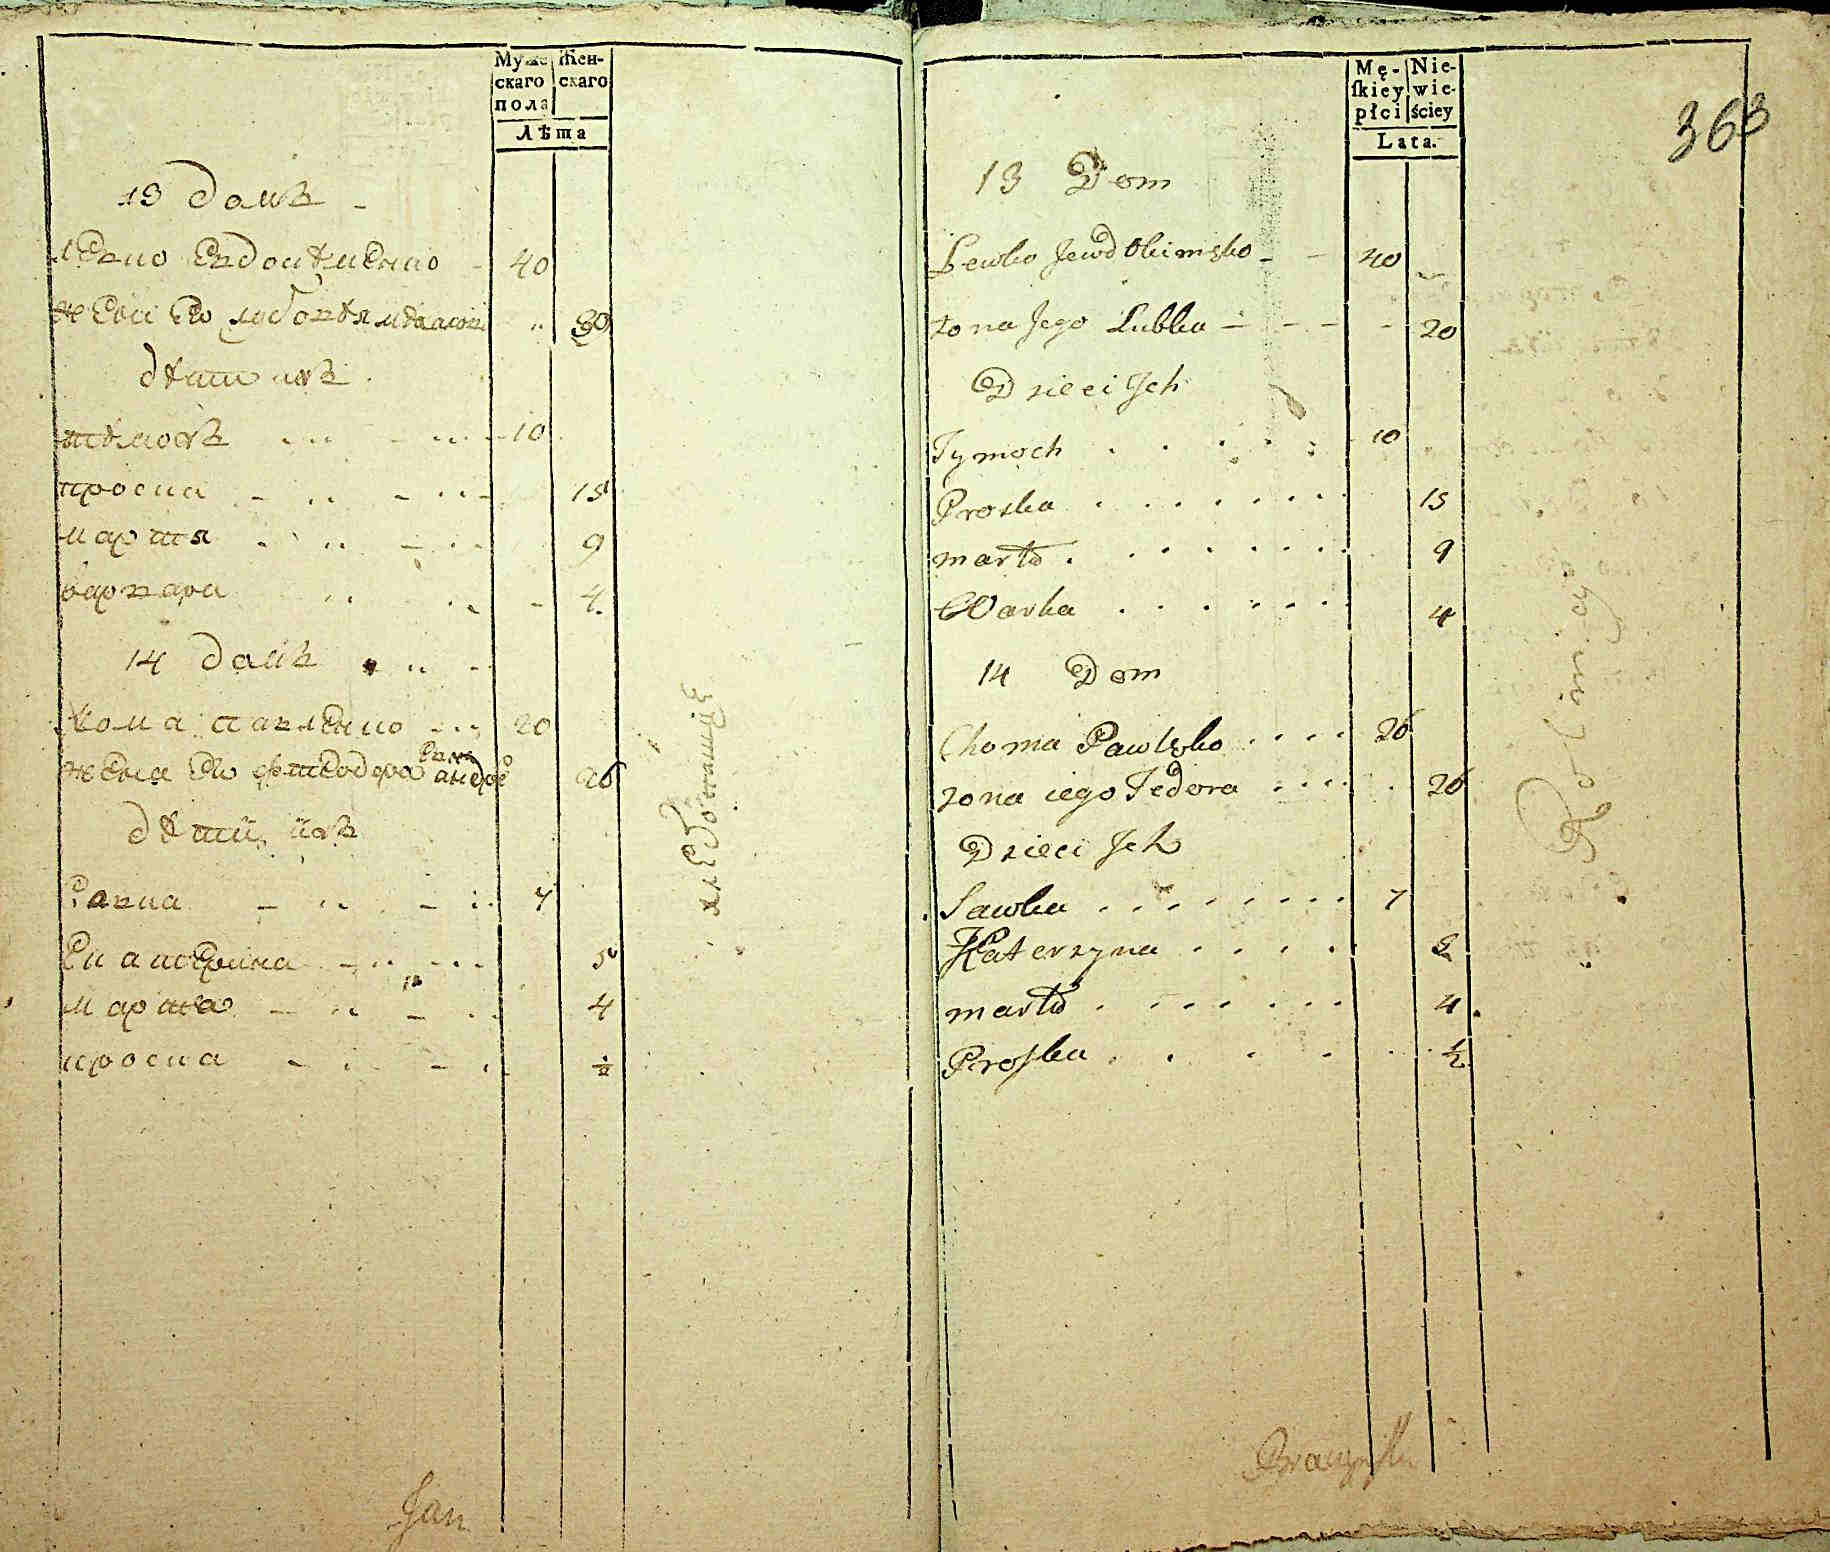 Муже Жен-
скаго скаго
пола
Лѣта
13 домъ
левко Евдокименко 40
жена Его любовья 30
дѣти ихъ
тимохъ 10
проска 15
марта 9
варвара 4
14 домъ
хома павленко 20
жена Его феодора андрее 26
дѣти ихъ
савка 7
Екатерина 5
марта 4
проска ½
хлебопашцѣ
Jan
363
Mę- Nie-
ſkiey wie-
płci ściey
Lata.
13 Dom
Lewko Jewdokimsko 40
żona Jego Lubka 20
Dzieci Jch
Tymoch 10
Proska 15
marta 9
Warka 4
14 Dom
Choma Pawlsko 26
żona iego Fedora 26
Dzieci Jch
Sawka 7
Katerzyna 5
marta 4
Proſka ½
Rolnicy